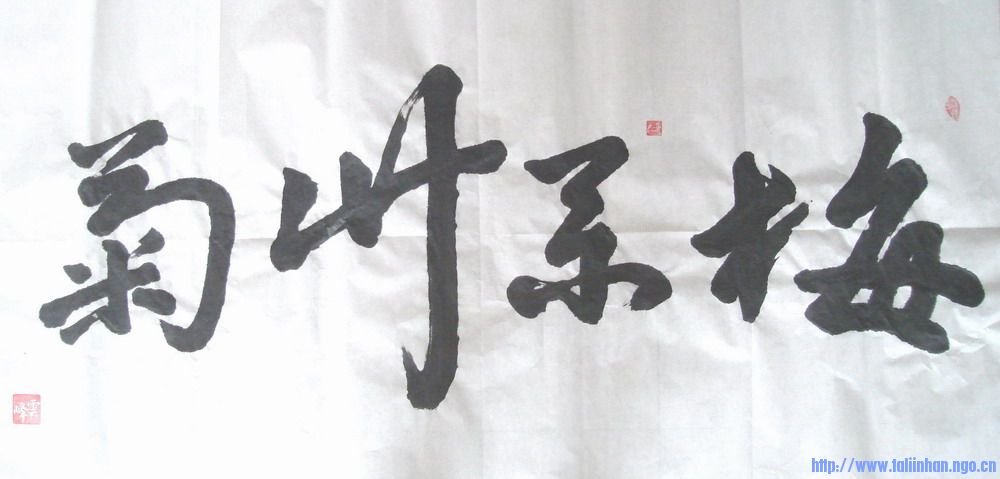 梅兰竹菊
雲峰
http://www.taliinhan.ngo.cn